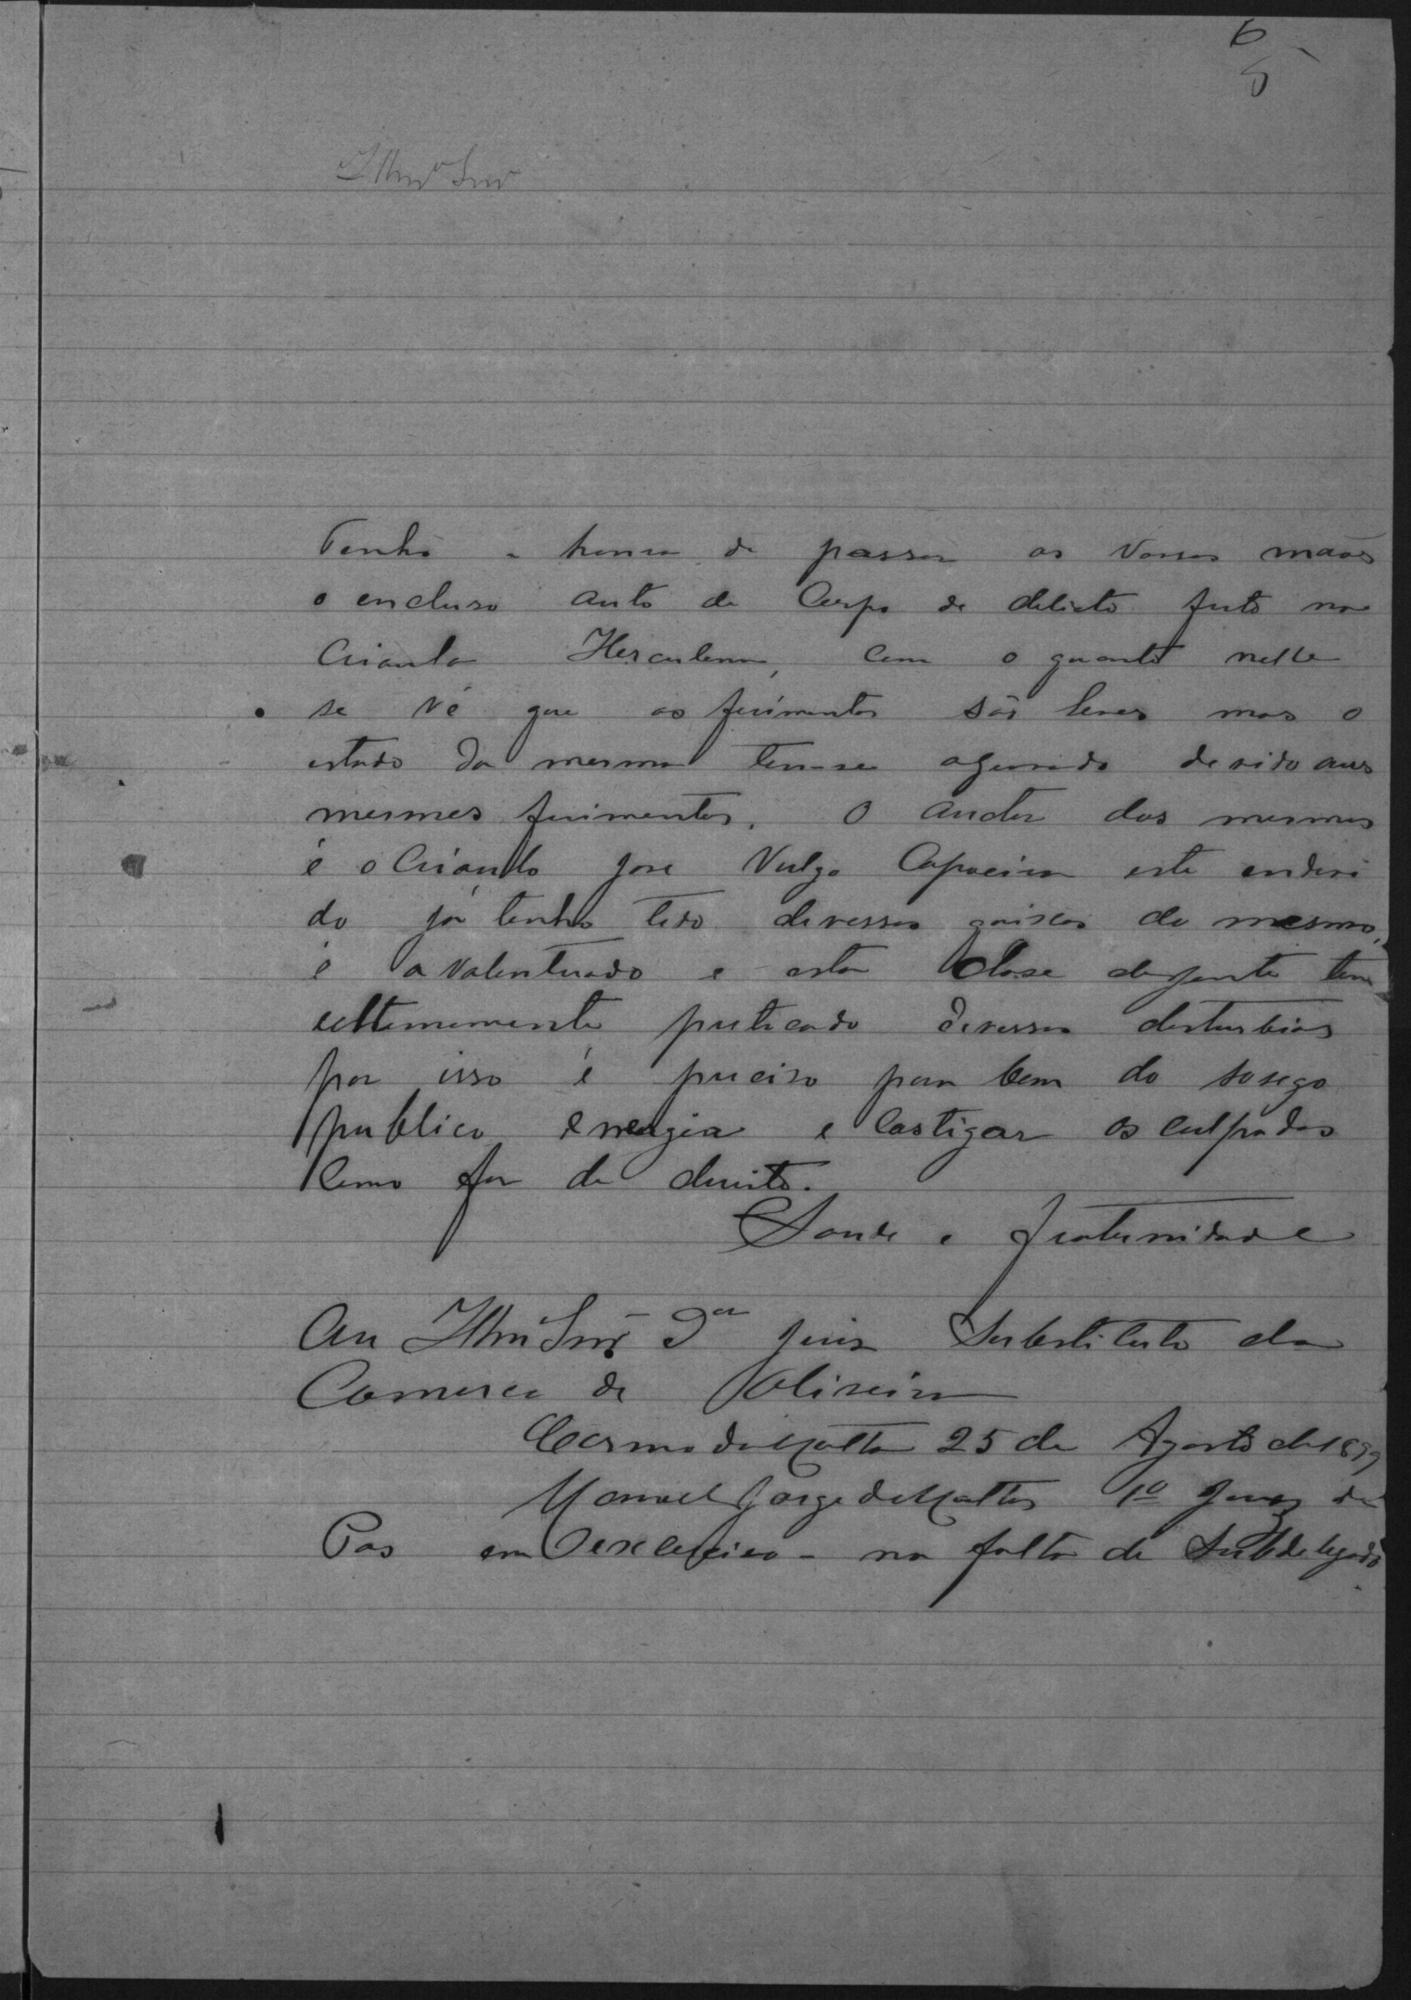 6
5
Illmo Snr
Tenho a honra de passar as Vossas mãos
o encluso auto de Corpo de delicto feito na
Crioula Herculana, com o quanto nelle
se vê que os ferimentos são leves mas o
estado da mesma tem-se agravado devido aus
mesmos ferimentos. O auctor dos mesmos
é o Crioulo José Vulgo Capoeira este endevi
do já tenho tido diversas queixas do mesmo,
é avalentuado e esta Classe de gente tem
ultemamente praticado diversos desturbios
por isso é preciso para bem do sosego
publico energia e Castigar os culpados
Como for de direito.
Saude e fraternidade
Au Illmo Snr Dor Juiz Substituto da
Comarca de Oliveira
Carmo da Matta 25 de Agosto de 1899
Manoel Jorge de Mattos 1º Juiz de
Pas em exercicio - na falta de Subdelegado